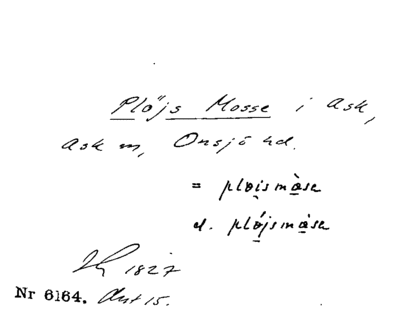 Plöjs Mosse i Ask,
Ask sn, Onsjö hd.
= plo̤i̯smòsa
d. plǫ́jsmòsa
1827
Nr 6164. Avt 15.